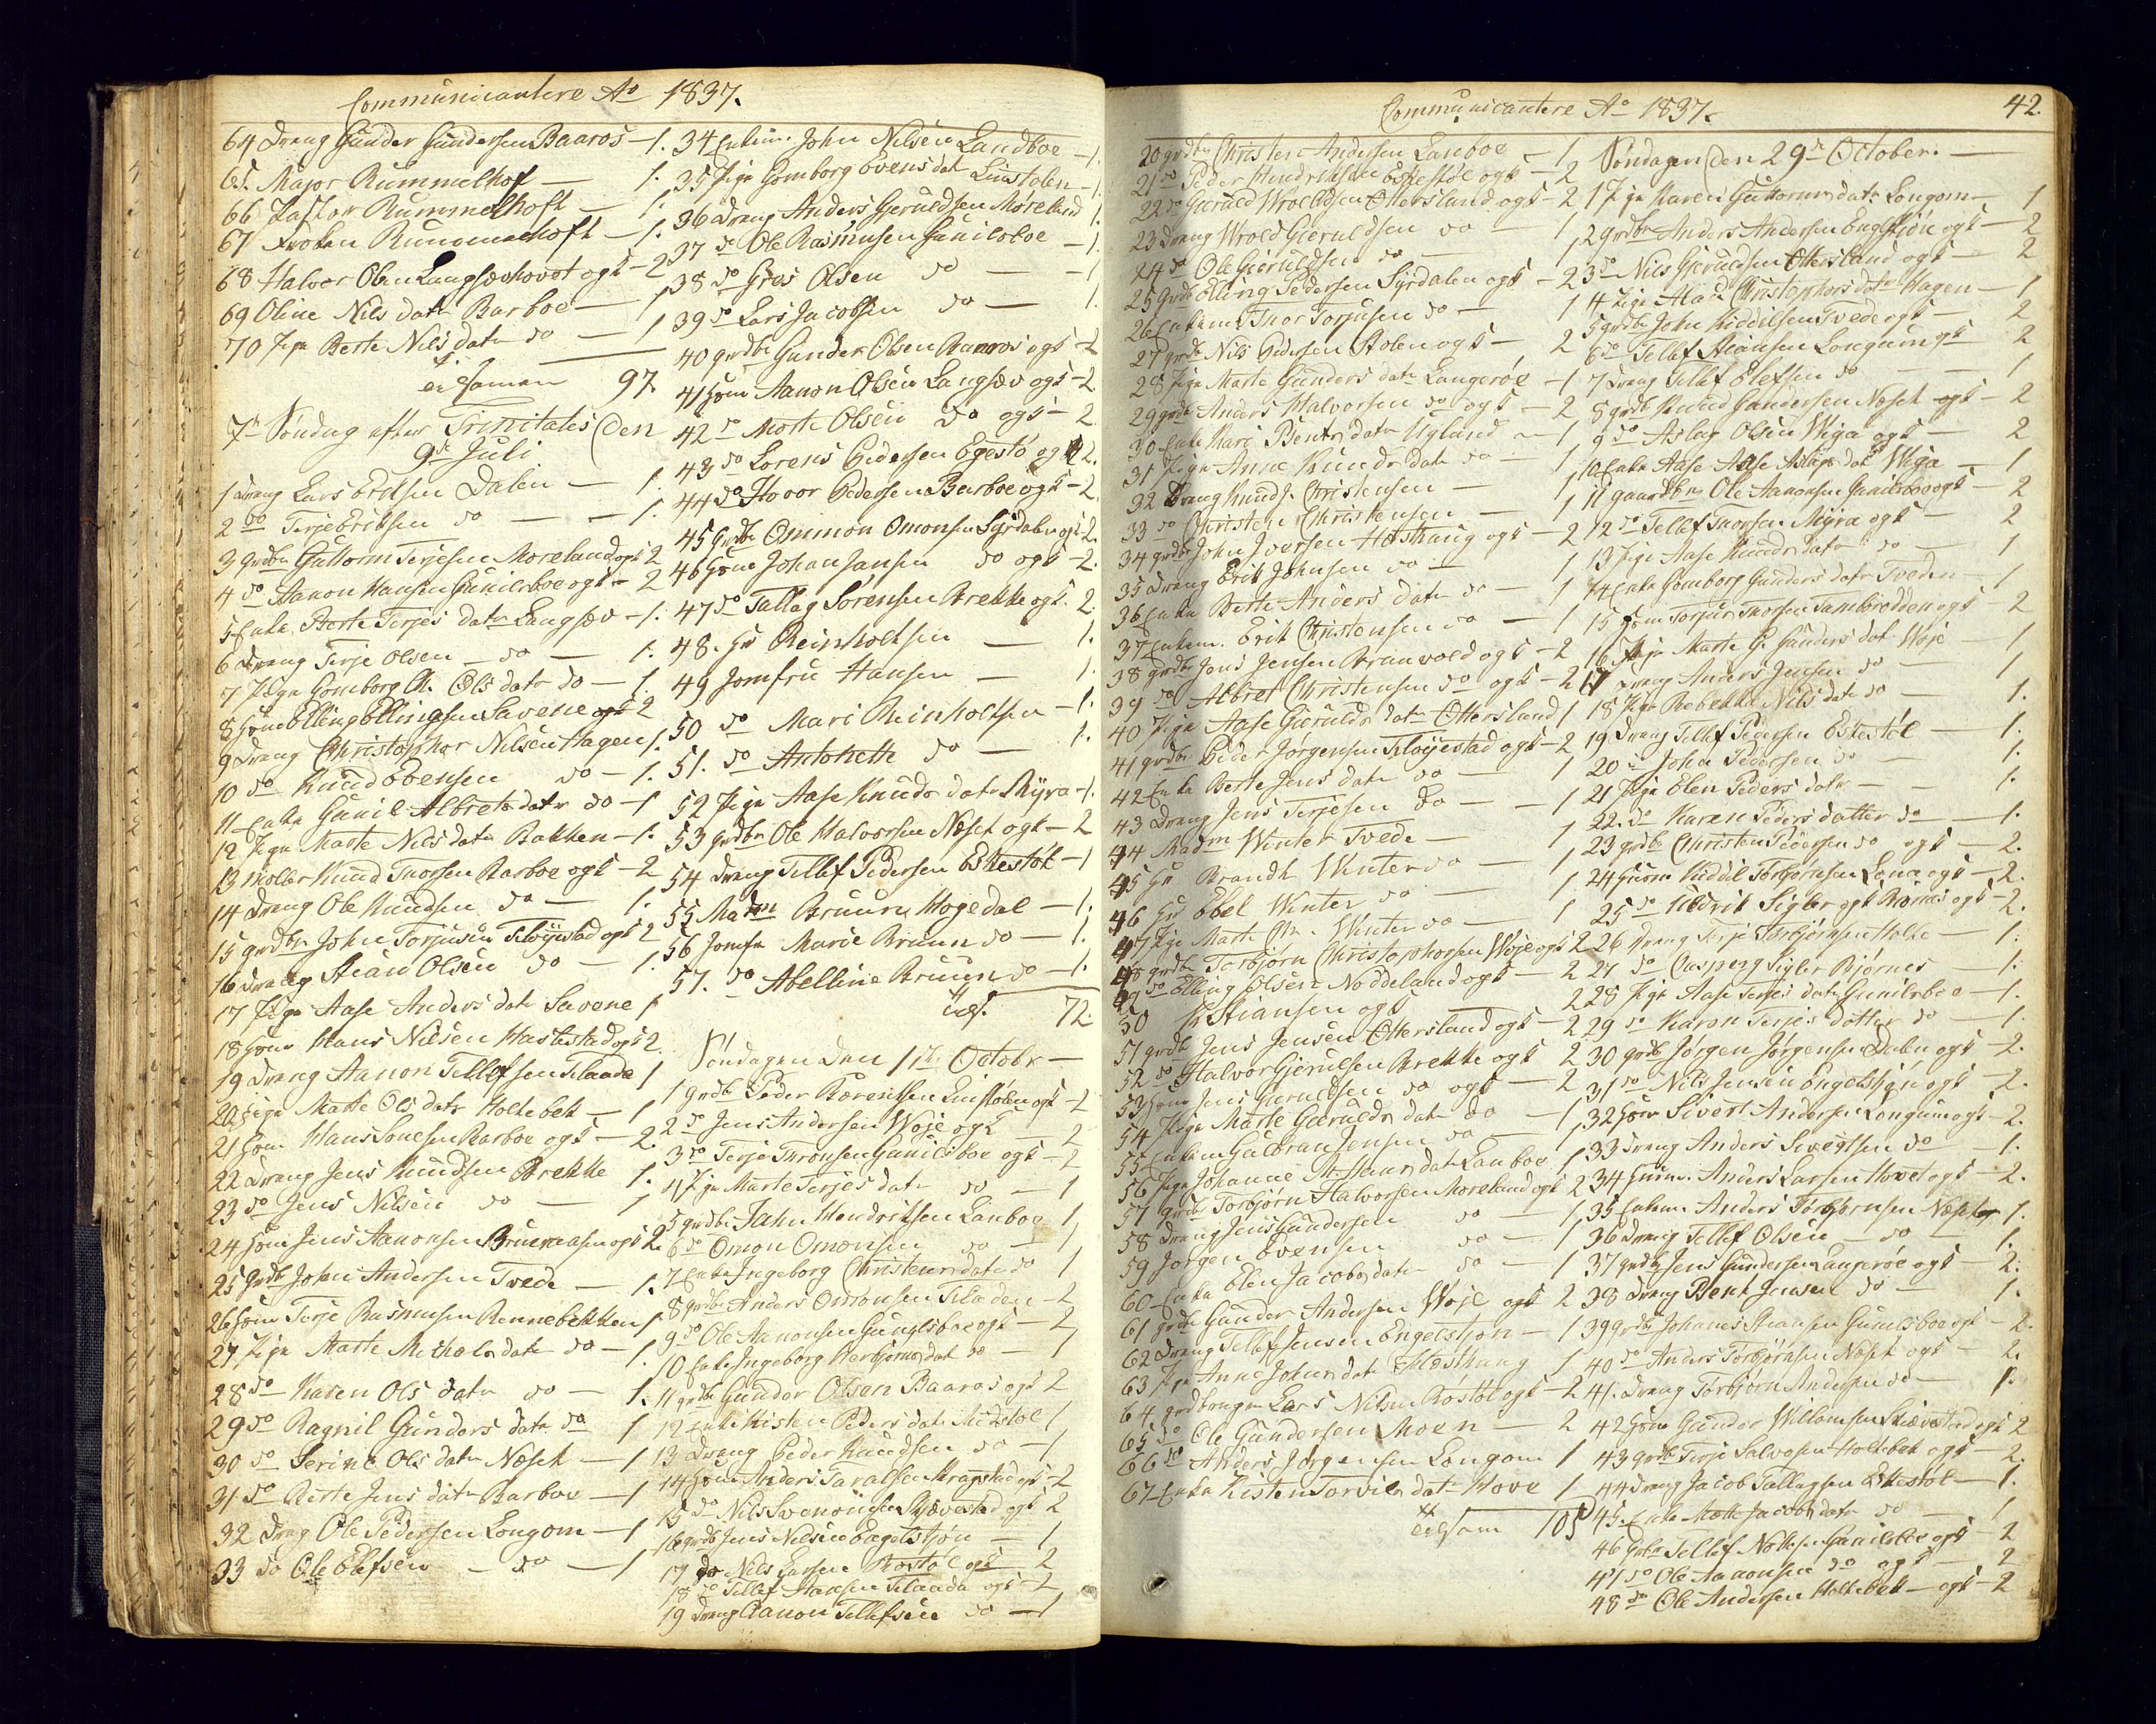 Communicantere Ao 1837.
64 Drang Gunder Gundersen Baaros — 1.
65. Major Rummelhof — 1.
66 Pastor Rummelhoft — 1.
67 Frøken Rummelhoft — 1.
68 Halvor Olsen Langsævhovet ogk — 2
69 Oline Nils datr Barboe — 1
70 Pige Berte Nils datr do — 1
er saman 97
7de Søndag efter Trinitatis den
9de Juli
1 Drang Lars Eretsen Dalen — 1.
2 do Terje Eriksen do — 1.
3 grdbr Guttorm Terjesen Moreland ogk 2
4 do Aanon Hansen Gunilsboe ogk — 2
5 Enke Berte Terjes datr Langsæv — 1.
6 Drang Terje Olsen — do — 1.
7 Pige Gomborg M. Ols datr do — 1.
8 Huusm Elling Ellingsen Savene ogk 2
9 Drang Christopher Nilsen Hagen 1.
10 do Knud Evensen do — 1.
11 Enke Gunil Albrets datr do — 1
12 Pige Marte Nils datr Bakken — 1.
13 Møller Knud Thorsen Barboe ogk — 2
14 Drang Ole Knudsen do — 1.
15 grdbr John Torjusen Fløjestad ogk 2
16 Drang Stian Olsen do — 1.
17 Pige Aase Anders datr Savene 1
18 Huusm Hans Nilsen Hastestad ogk 2
19 Drang Aanon Tellefsen Flaade 1
20 Pige Marte Ols datr Holtebek — 1
21 Huusm Hans Sonesen Barboe ogk — 2.
22 Drang Jens Knudsen Brekke 1.
23 do Jens Nilsen do — 1
24 Huusm Jens Aanonsen Bruenaasen ogk 2.
25 grdbr John Andersen Tvede — 1.
26 Huusm Terje Rasmusen Rennebekken 1
27 Pige Marte Michels datr do — 1
28 do Karen Ols datr do — 1.
29 do Ragnil Gunders datr do 1
30 do Serine Ols datr Næset — 1
31 do Berte Jens datr Barboe — 1
32 Drag Ole Pedersen Longom — 1
33 do Ole Elefsen — do — 1
34 Enkem. John Nilsen Landboe — 1.
35 Pige Gomborg Evens dat Linstolen — 1.
36 Drang Anders Gjeruldsen Moreland 1.
37 do Ole Rasmusen Gunilsboe — 1.
38 do Gros Olsen do — 1
39 do Lars Jacobsen do — 1.
40 grdbr Gunder Olsen Baaros ogk — 2
41 Huusm Aanon Olsen Langsæv ogk — 2.
42 do Morte Olsen do ogk — 2
43 do Lorens Pedersen Egestø ogk 2.
44 do Hovor Pedersen Barboe ogk — 2
45 grdbr Ommon Omonsen Syrdalen ogk 2.
46 Huusm Johan Jansen do ogk — 2.
47 do Tallag Sørensen Brekke ogk. 2.
48. Hr Reinholtsen — 1.
49 Jomfru Hansen — 1.
50 do Mari Reinholtsen — 1.
51. do Antonette do — 1.
52 Pige Aase Knuds datr Myra — 1.
53 grdbr Ole Halvorsen Næset ogk — 2
54 Drang Tellef Pedersen Eskestøl — 1
55 Madm Bruun Hogedal — 1.
56 Jomfr Marie Bruun do — 1.
57. do Abelline Bruun do — 1.
72.
Søndagen Den 1ste Octobr —
1 grdbr Peder Berentsen Linstølen ogk — 2
2 do Jens Andersen Woje ogk — 2
3 do Terje Thronsen Gunilsboe ogk — 2
4 Pige Marte Terjes datr do — 1
5 grdbr John Hendriksen Lanboe 1
6 do Omon Omonsen do — 1
7 Enke Ingeborg Christens datr do 1
8 grdbr Anders Omonsen Flaaden — 2
9 do Ole Aanonsen Gunilsboe ogk — 2
10 Enke Ingeborg Herbjorns dat do — 1
11 grdbr Gunder Olsen Baaros ogk 2
12 Enke Kisten Peders datr Midstøl 1
13 Drang Peder Knudsen do — 1
14 Huusm Anders Taralsen Kragstad ogk — 2
15 do Nils Svenonsen Skjævestad ogk 2
16 grdbr Jens Nilsen Engelstjøn — 1
17 do Nils Larsen Røstøl ogk — 2
18 do Tellef Hansen Flaade ogk — 2
19 Drang Aanon Tellefsen do — 1
Communicantere Ao 1837.
42.
20 grdbr Christen Andersen Lanboe — 1
21 do Peder Hendriksen Eskestøl ogk — 2
22 do Gieruld Wroldsen Ottersland ogk — 2
23 Drang Wrold Gieruldsen do — 1
24 do Ole Gieruldsen do — 1
25 grdbr Elling Pedersen Syrdalen ogk — 2
26 Enkem Thor Torjusen do — 1
27 grdbr Nils Pedersen Stolen ogk — 2
28 Pige Marte Gunders datr Langerøe — 1
29 grdbr Anders Halvorsen do ogk — 2
30 Enke Kari Bents datr Ugland — 1
31 Pige Anne Knuds datr do — 1
32 Drang Knud J. Christensen — 1
33 do Christen Christensen — 1
34 grdbr John Iversen Hæsthaug ogk — 2
35 Drang Erik Johnsen do — 1
36 Enke Berte Anders datr do — 1
37 Enkem. Erik Christensen do — 1
38 grdbr Jens Jensen Branvold ogk — 2
39 do Albret Christensen do ogk — 2
40 Pige Aase Gierulds datr Ottersland 1
41 grdbr Peder Jørgensen Fløyestad ogk — 2
42 Enke Berte Jens datr do — 1
43 Drang Jens Terjesen do — 1
44 Madm Winter Tvede — 1
45 Hr Brandt Winter do — 1
46 Hr Ebel Winter do — 1
47 Pige Marte M. Winter do — 1
48 grdbr Torbjørn Christophersen Woje ogk 2
49 do Elling Olsen Noddeland ogk — 2
50 Hr Stiansen ogk — 2
51 grdbr Jens Jensen Ottersland ogk — 2
52 do Halvor Gjerulsen Brekke ogk 2
53 Huusm Jens Gieruldsen do ogk — 2
54 Pige Marte Gierulds datr do — 1
55 Enkem Gulbran Jensen do — 1
56 Pige Johanne M. Hans dat Lanboe 1
57 grdbr Torbjørn Halvorsen Moreland ogk 2
58 Drang Jens Gundersen do — 1
59 Jørgen Evensen do — 1
60 Enke Elen Jacobs datr do — 1
61 grdbr Gunder Andersen Woje ogk 2
62 Drang Tellef Jensen Engelstjøn — 1
63 Pige Anne Johns dat Hæsthaug 1
64 grdbruger Lars Nilsen Røstøl ogk — 2
65 do Ole Gundersen Moen — 2
66 do Anders Jørgensen Longom 1
67 Enke Kisten Torvils dat Hove 1
tilsam 105
Søndagen Den 29de October. —
1 Pige Karen Guttorms datr Longom — 1
2 grdbr Anders Andersen Englstjøn ogk — 2
3 do Nils Gjeruldsen Ottersland ogk — 2
4 Pige Alau Christophers datr Hagen — 1
5 grdbr John Kiddilsen Tvede ogk — 2
6 do Tellef Stiansen Longum ogk 2
7 Drang Tellef Elefsen do — 1
8 grdbr Knud Gundersen Næset ogk — 2
9 do Aslag Olsen Wiga ogk — 2
10 Enke Aase Aase Aslags dat Wiga — 1
11 gaardbr Ole Aanonsen Gunilsboe ogk — 2
12 do Tellef Thorsen Myra ogk — 2
13 Pige Aase Knuds datr do — 1
14 Enke Gomborg Gunders datr Tveden — 1
15 Huusm Torjus Thorsen Tambrødden ogk — 2
16 Pige Marte G. Gunders dat Woje — 1
17 Drang Anders Jensen do — 1
18 Pige Rebekka Nils dat do — 1.
19 Drang Tellef Pedersen Eskestøl — 1.
20 do John Pedersen do — 1.
21 Pige Elen Peders datr — 1.
22. do Karen Peders datter do — 1.
23 grdbr Christen Pedersen do ogk — 2.
24 Huusm Kiddil Torbjørnsen Lona ogk — 2.
25 do Uldrik Sigler ogk Bjørnes ogk — 2.
26 Drang Terje Torbjørnsen Holte — 1.
27 do Casperg Sigler Bjørnes — 1.
28 Pige Aase Terjes datr Gunilsboe — 1.
29 do Karen Terjes dotter do — 1.
30 grdbr Jørgen Jørgensen Dalen ogk — 2.
31 do Nils Jensen Engelstjøn ogk — 2.
32 Huusm Sivert Andersen Longum ogk — 2.
33 Drang Anders Sivertsen do — 1.
34 Huusm. Anders Larsen Hovet ogk — 2.
35 Enkem. Anders Torbjørnsen Næset 1.
36 Drang Tellef Olsen — do — 1.
37 grdbr Jens Gundersen Langerøe ogk — 2.
38 Drang Bent Jensen do — 1.
39 grdbr Johannes Stiansen Gunilsboe ogk — 2.
40 do Anders Torbjørnsen Næset ogk — 2.
41. Drang Torbjørn Andersen do — 1.
42 Huusm Gunder Willomsen Skiævestad ogk 2
43 grdbr Terje Salvesen Holtebek ogk — 2.
44 Drang Jacob Tallagsen Eskestøl — 1.
45. Enke Mette Jacobs datr do — 1
46 grdbr Tellef Nilsen Gunilsboe ogk — 2
47 do Ole Aanonsen do ogk — 2
48 do Ole Andersen Holtebek — ogk — 2